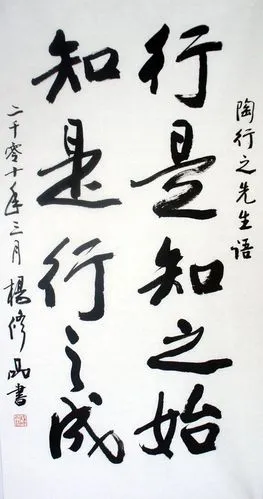 陶行之先生语
行是知之始
知是行之成
二千零十年三月 楊修品書